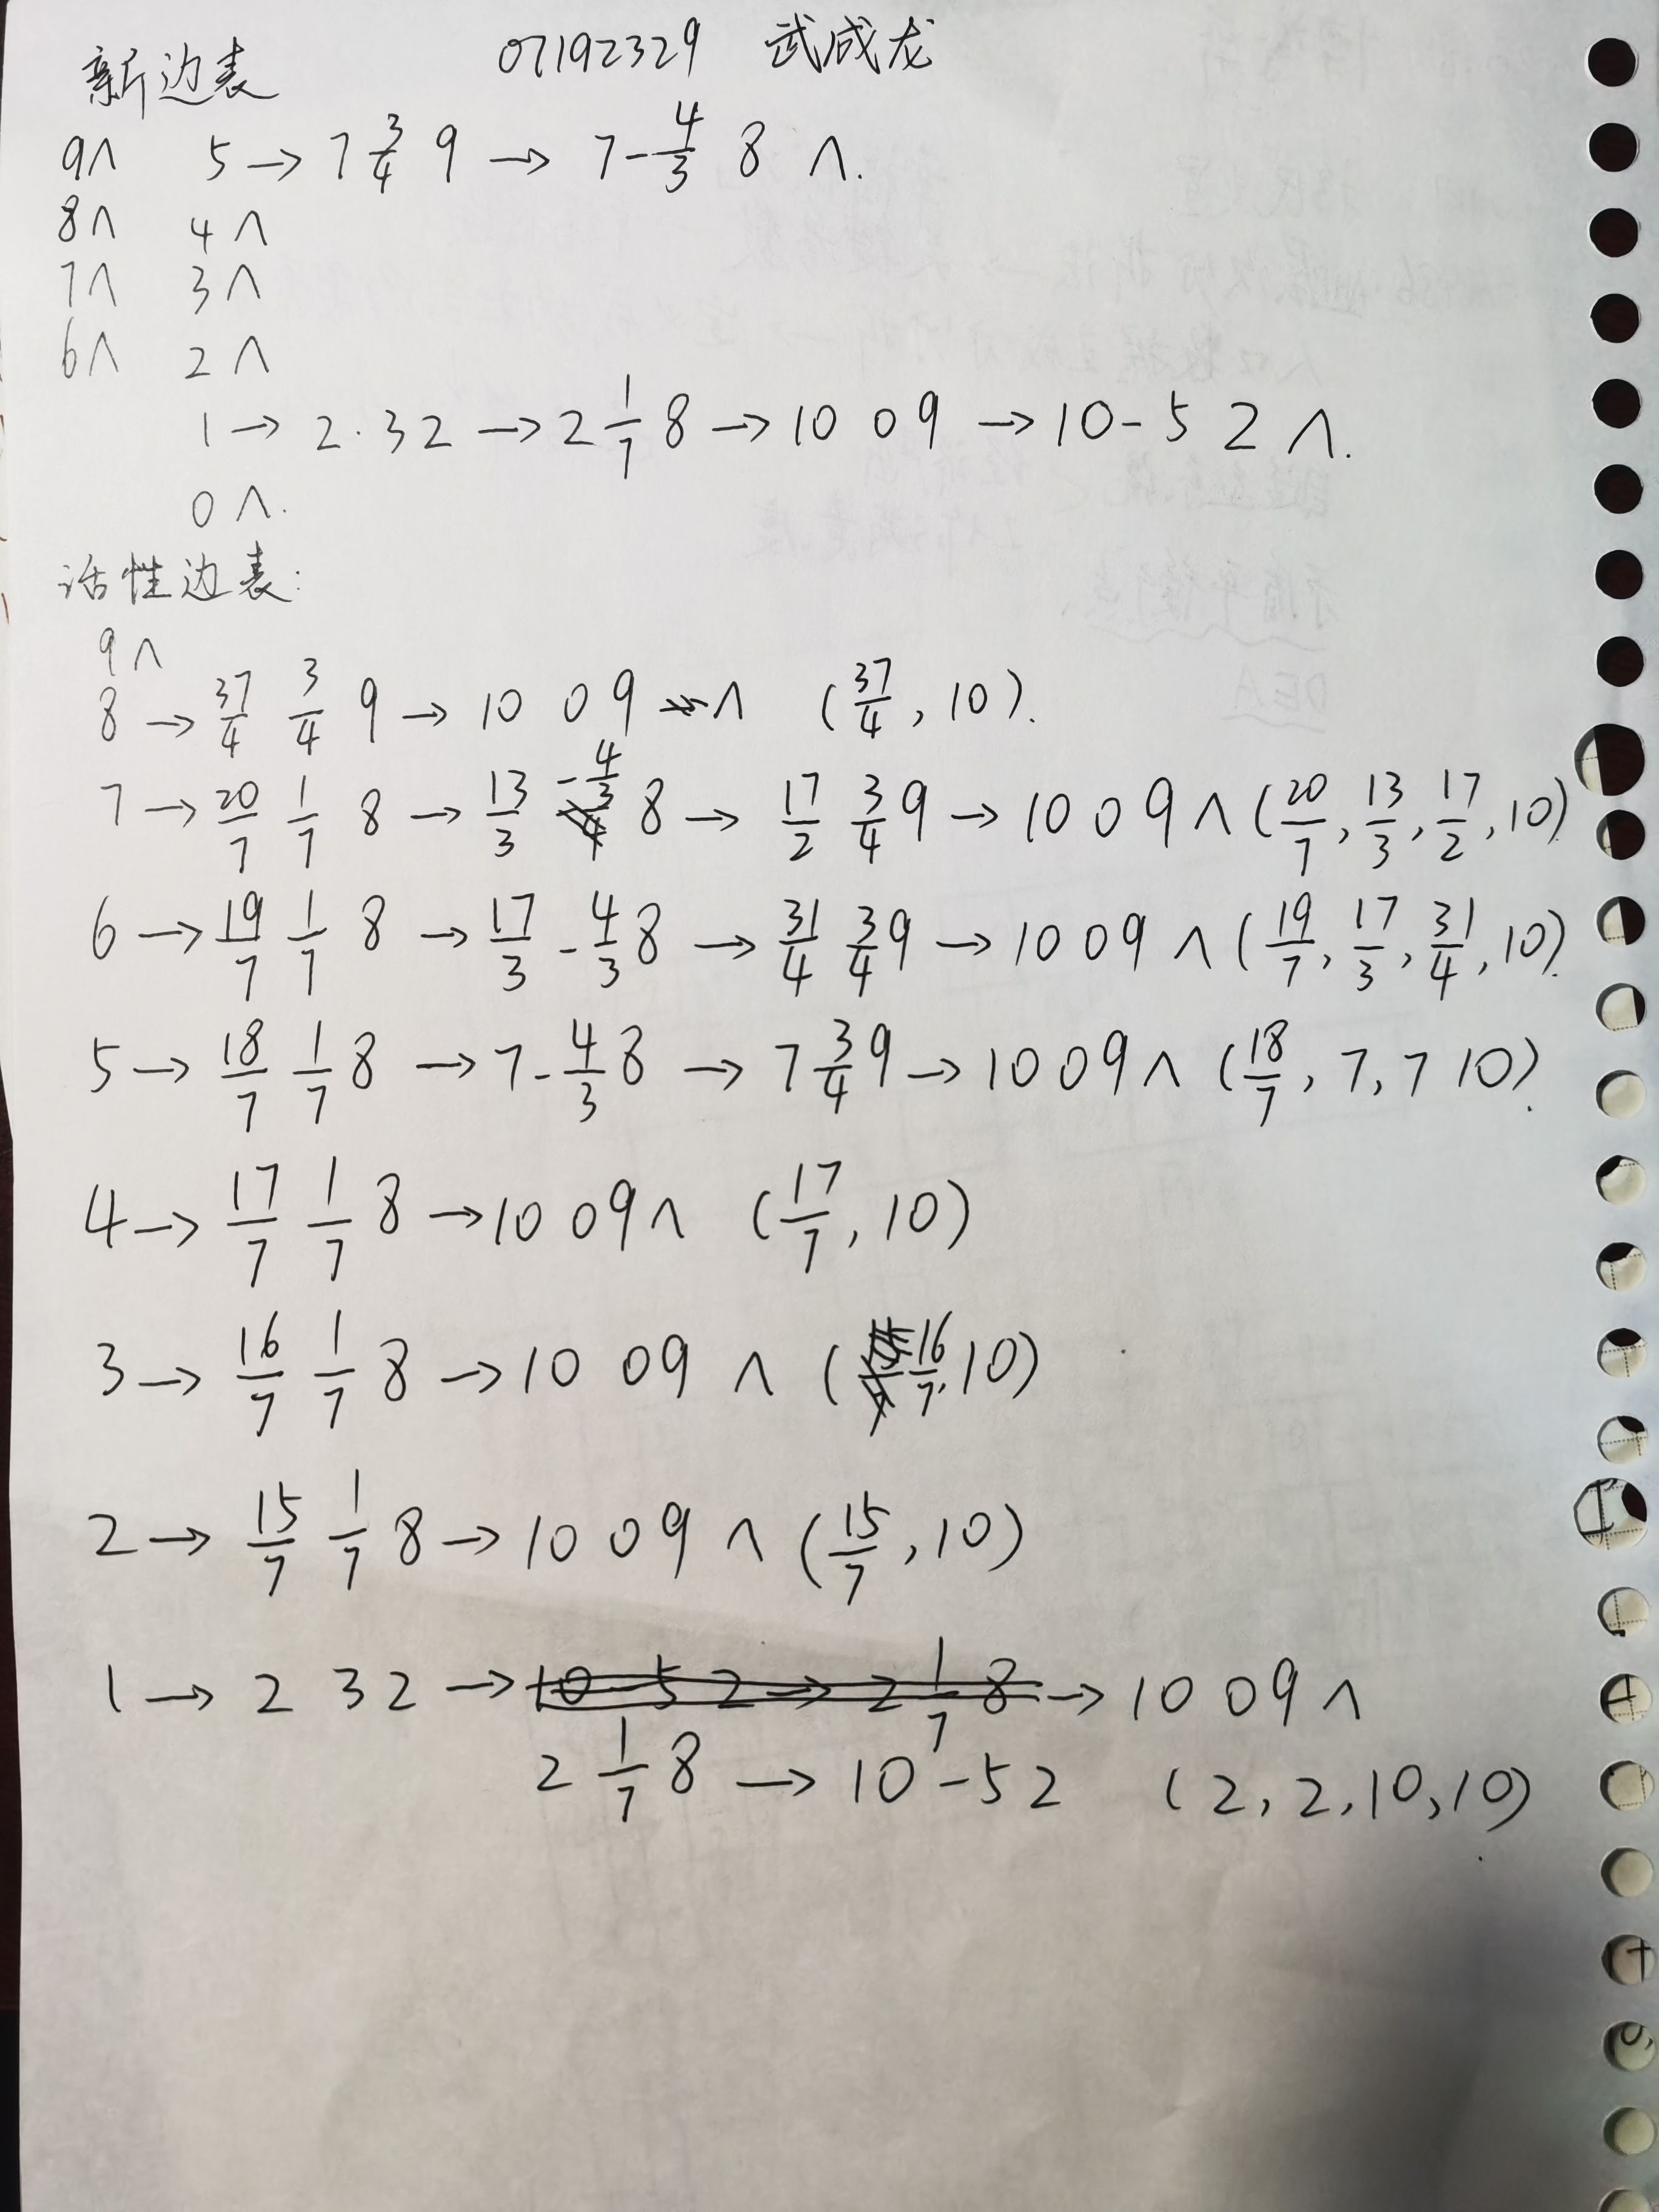 新边表 07192329 武成龙
9∧ 5→7 3/4 9→7 -4/3 8 ∧.
8∧ 4∧
7∧ 3∧
6∧ 2∧
1→2·32→2 1/7 8→10 0 9→10 -5 2 ∧.
0∧.
活性边表:
9∧
8→37/4 3/4 9→10 0 9 ∧ (37/4, 10).
7→20/7 1/7 8→13/3 -4/3 8→17/2 3/4 9→10 0 9 ∧ (20/7, 13/3, 17/2, 10)
6→19/7 1/7 8→17/3 -4/3 8→31/4 3/4 9→10 0 9 ∧ (19/7, 17/3, 31/4, 10).
5→18/7 1/7 8→7 -4/3 8→7 3/4 9→10 0 9 ∧ (18/7, 7, 7 10).
4→17/7 1/7 8→10 0 9 ∧ (17/7, 10)
3→16/7 1/7 8→10 0 9 ∧ (16/7, 10)
2→15/7 1/7 8→10 0 9 ∧ (15/7, 10)
1→2 3 2→10 -5 2→2 1/7 8→10 0 9 ∧
2 1/7 8→10 -5 2 (2, 2, 10, 10)